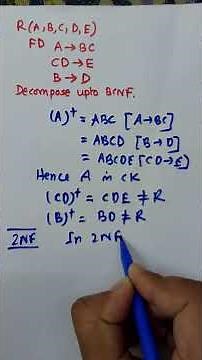 R(A,B,C,D,E)
FD A→BC
CD→E
B→D
Decompose upto BCNF.
(A)⁺ = ABC [A→BC]
= ABCD [B→D]
= ABCDE [CD→E]
Hence A in CK
(CD)⁺ = CDE ≠ R
(B)⁺ = BD ≠ R
2NF In 2NF